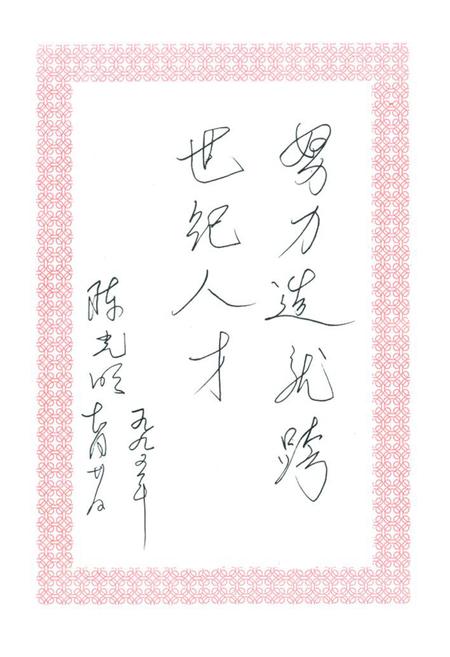 努力造就跨
世纪人才
陈光明
一九九五年
七月廿日